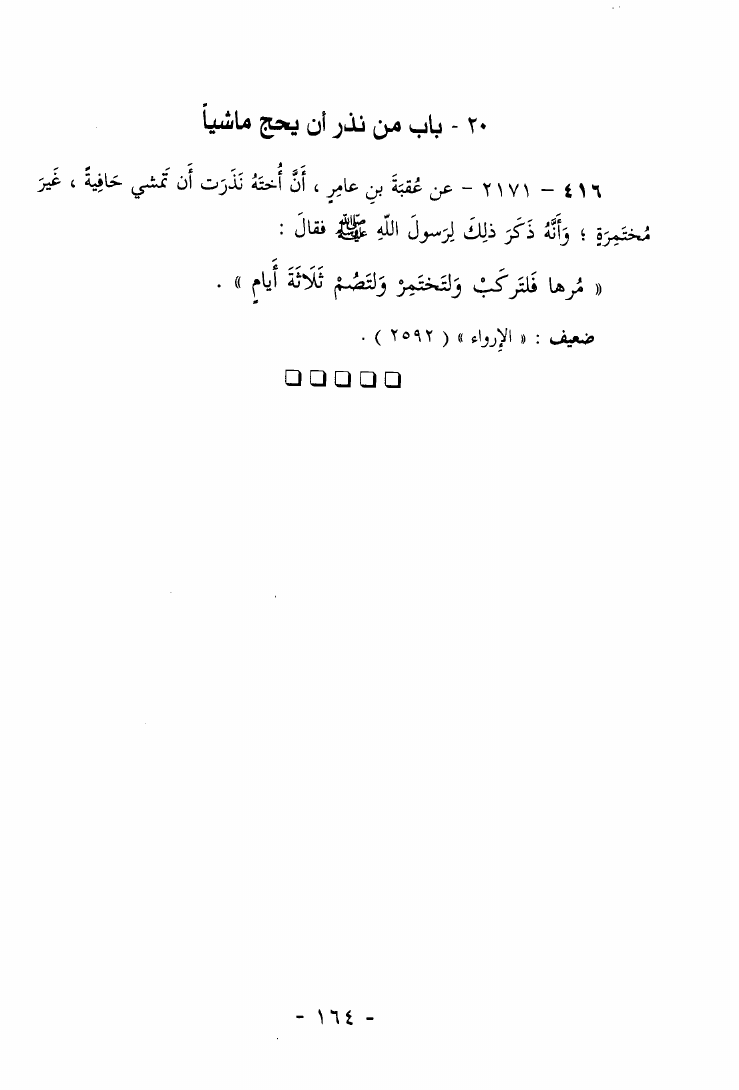 ٢٠ - باب من نذر أن يحج ماشياً
٤١٦ – ٢١٧١ – عن عُقبَةَ بنِ عامِرٍ ، أَنَّ أُختَهُ نَذَرَت أَن تَمشي حَافِيةً ، غَيرَ
مُختَمِرَةٍ ؛ وَأَنَّهُ ذَكَرَ ذلِكَ لِرَسولَ اللَّهِ ﷺ فقالَ :
« مُرها فَلتَركَبْ وَلتَختَمِرْ وَلتَصُمْ ثَلَاثَةَ أَيامٍ » .
ضعيف : « الإرواء » ( ٢٥٩٢ ) .
□ □ □ □ □
- ١٦٤ -